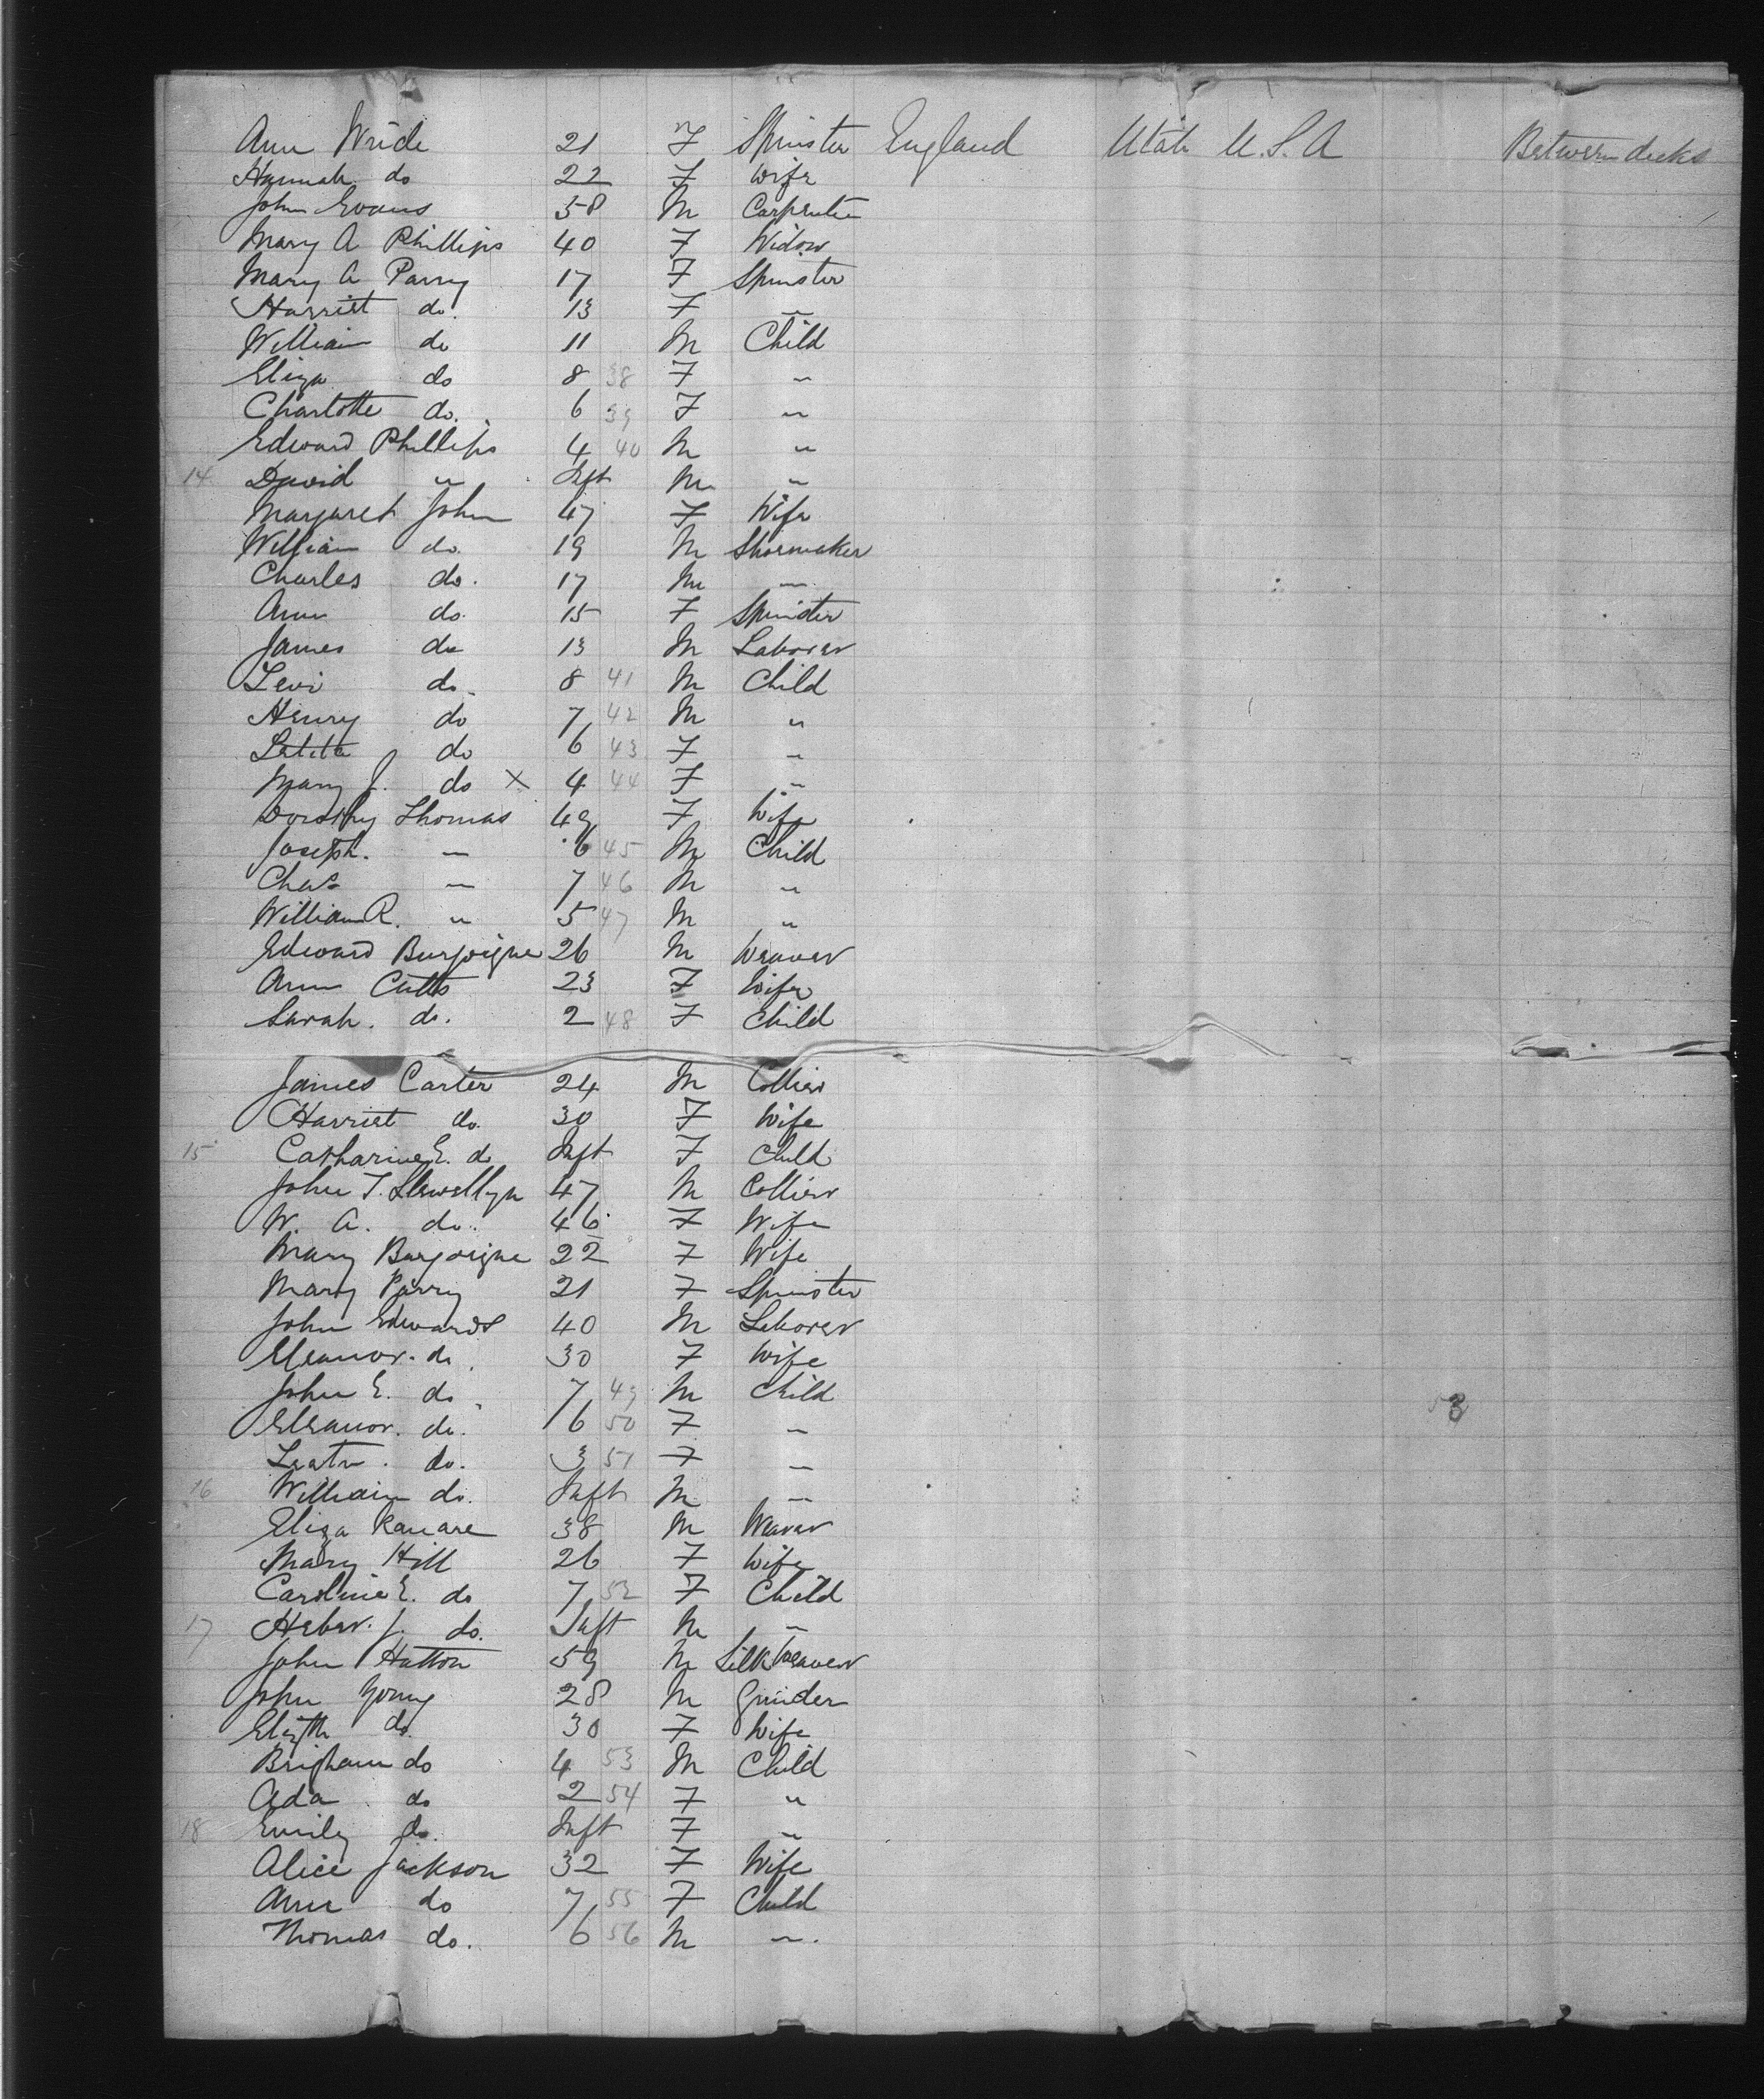 Ann Wride 21 F Spinster England Utah U.S.A Between decks
Hannah do 22 F Wife
John Evans 58 M Carpenter
Mary A Phillips 40 F Widow
Mary A Parry 17 F Spinster
Harriet do. 13 F "
William do 11 M Child
Eliza do 8 38 F "
Charlotte do. 6 39 F "
Edward Phillips 4 40 M "
14 David " Inft M "
Margaret John 47 F Wife
William do. 19 M Shoemaker
Charles do. 17 M "
Ann do. 15 F Spinster
James do 13 M Laborer
Levi do. 8 41 M Child
Henry do 7 42 M "
Letitia do 6 43 F "
Mary J. do X 4 44 F "
Dorothy Thomas 49 F Wife
Joseph. " 6 45 M Child
Chas " 7 46 M "
William R. " 5 47 M "
Edward Burgoigne 26 M Weaver
Ann Cutts 23 F Wife
Sarah. do. 2 48 F Child
James Carter 24 M Collier
Harriet do. 30 F Wife
15 Catharine E. do Inft F Child
John T. Llewellyn 47 M Collier
W. A. do. 46 F Wife
Mary Burgoigne 22 F Wife
Mary Parry 21 F Spinster
John Edwards 40 M Laborer
Eleanor. do. 30 F Wife
John E. do. 7 49 M Child
Eleanor. do. 6 50 F "
do. 3 51 F "
16 William do. Inft M "
Eliza 38 M Weaver
Mary Hill 26 F Wife
Caroline E. do 7 52 F Child
17 Heber. J. do. Inft M "
John Hatton 59 M Silk Weaver
John Young 28 M Grinder
Elizth do. 30 F Wife
Brigham do 4 53 M Child
Ada do 2 54 F "
18 Emily do. Inft F "
Alice Jackson 32 F Wife
Ann do 7 55 F Child
Thomas do. 6 56 M "